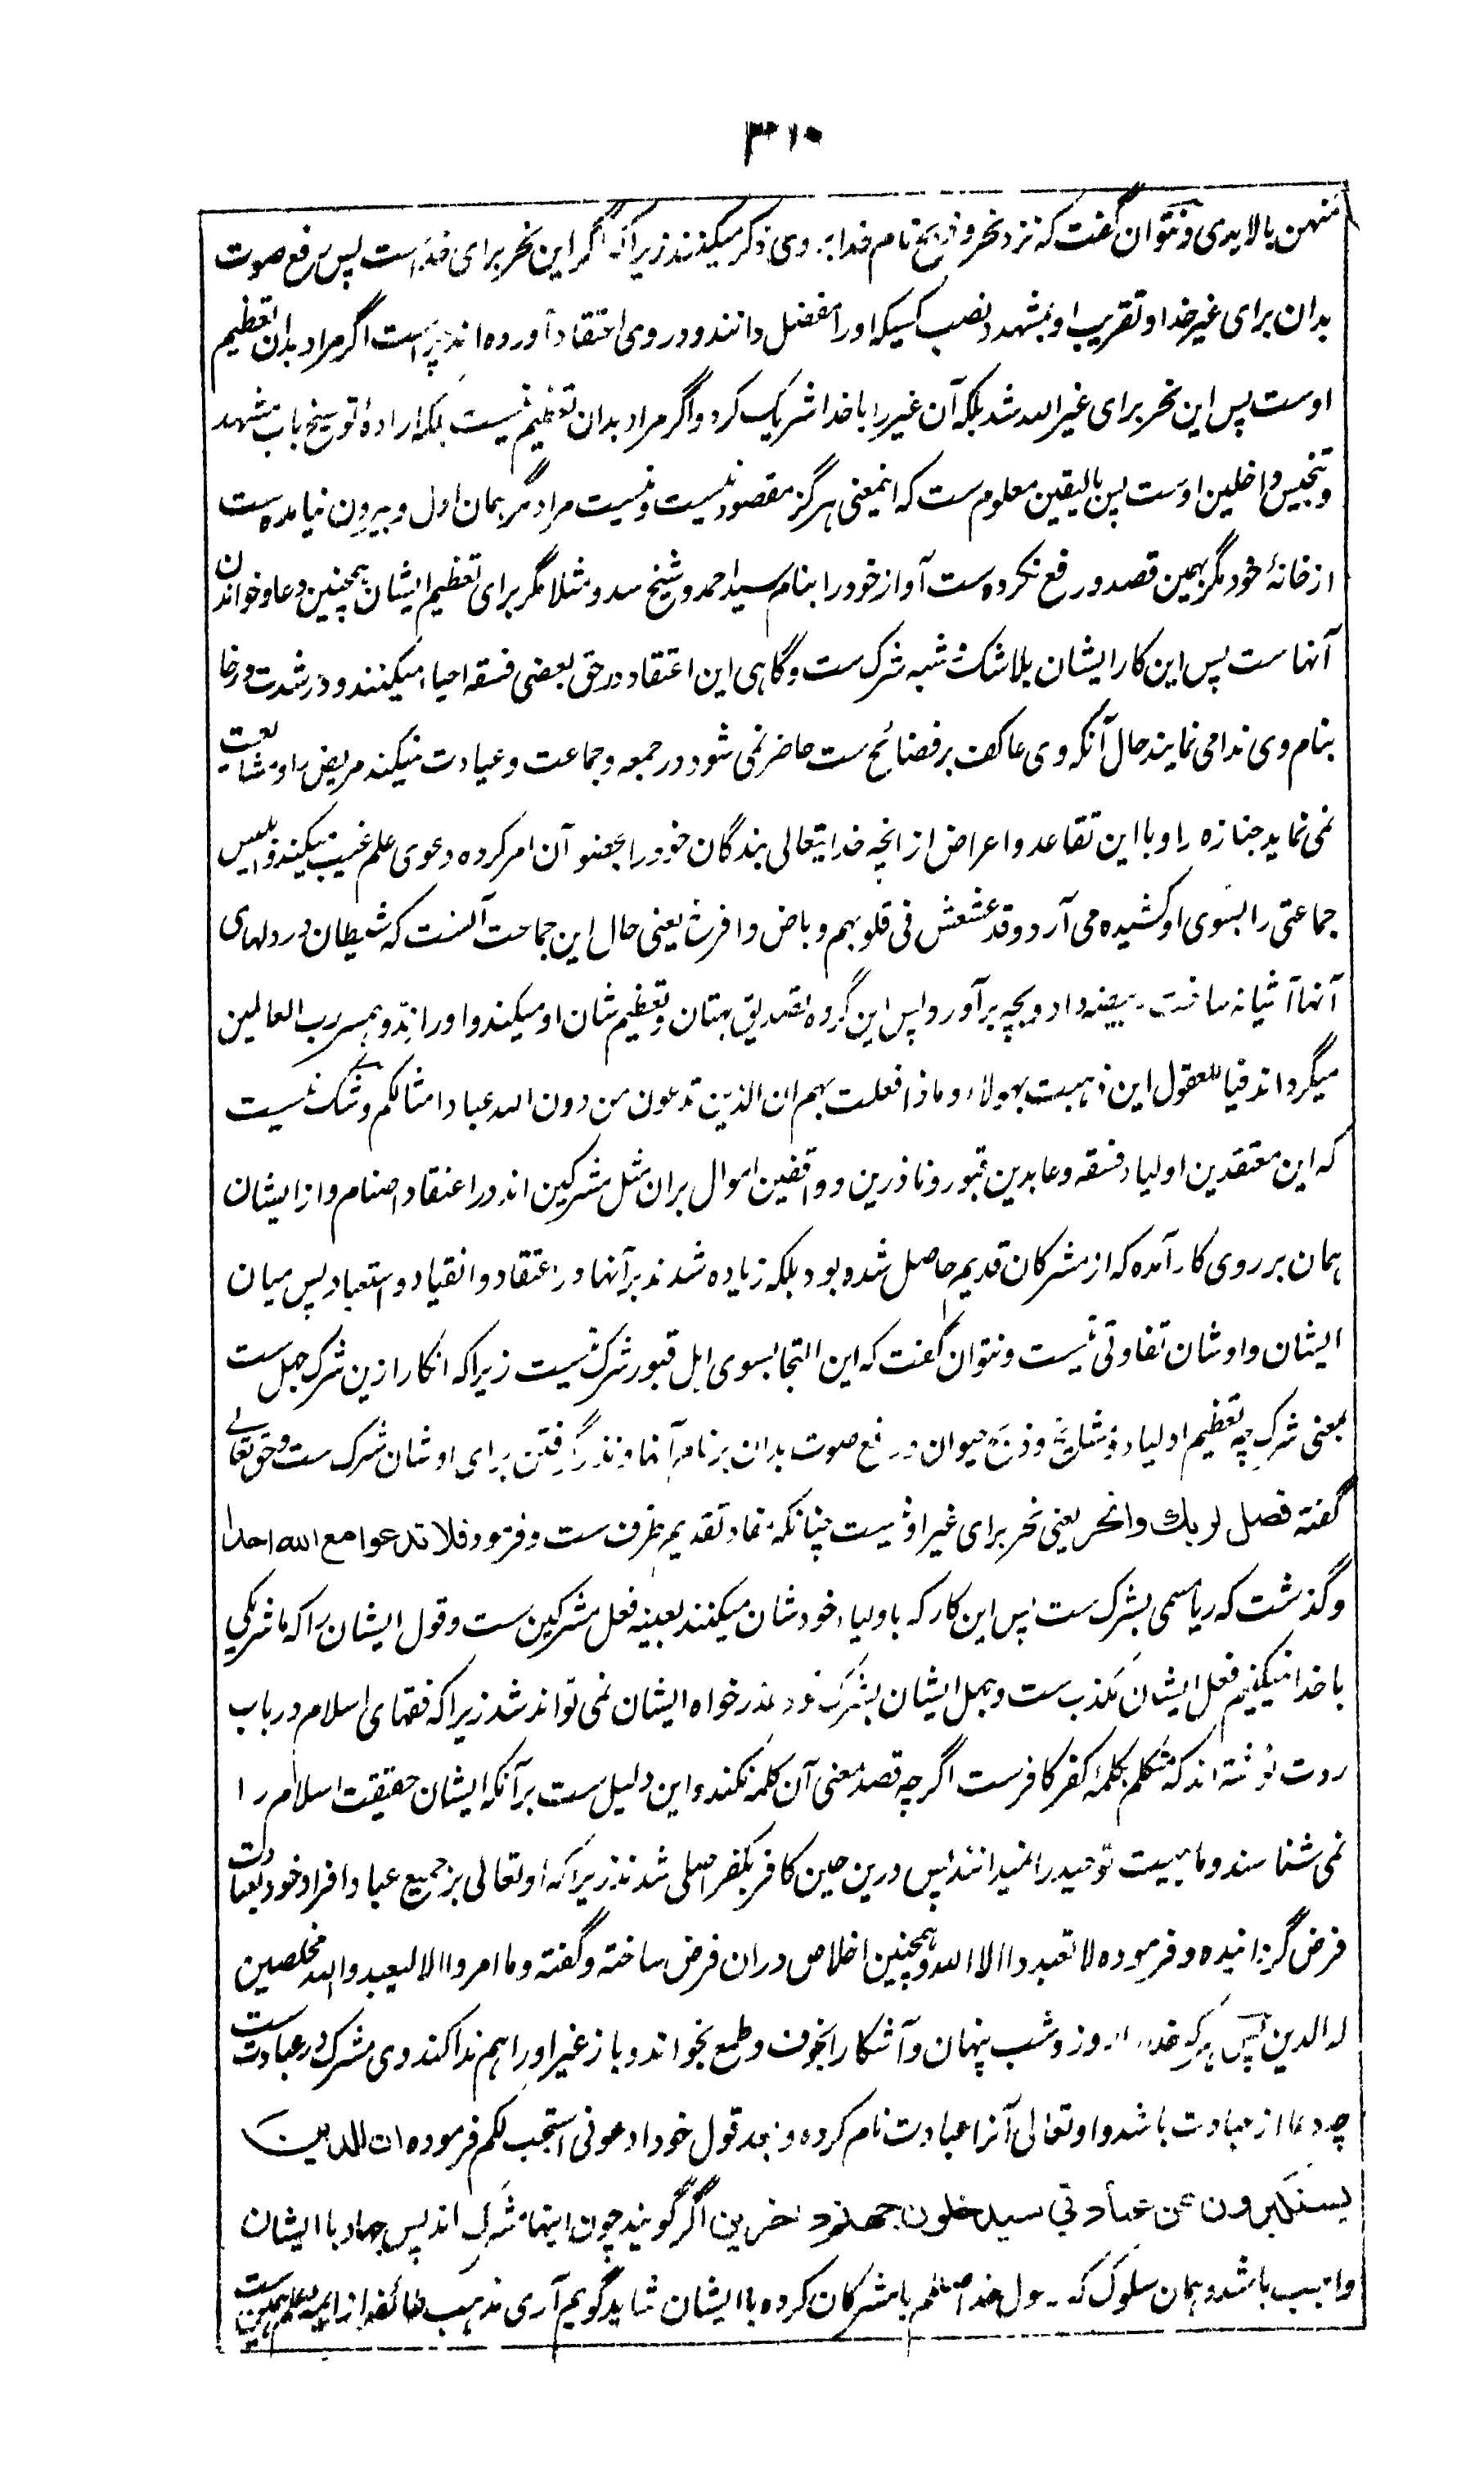 ۳۱۰
منهن بالایدی و نتوان گفت که نزد نحر و ذبح نام خدا بر وی ذکر میکنند زیرا که اگر این نحر برای خداست پس رفع صوت
بدان برای غیر خدا و تقریب او بمشهد و نصب کسیکه او را مفضل دانند و در وی اعتقاد آورده اند چراست اگر مراد بدان تعظیم
اوست پس این نحر برای غیر الله شد بلکه آن غیر را با خدا شریک کرد و اگر مراد بدان تعظیم نیست بلکه ارادهٔ توسیخ باب مشهد
و تنجیس داخلین اوست پس بالیقین معلوم ست که اینمعنی هرگز مقصود نیست و نیست مراد مگر همان اول و بیرون نیامده ست
از خانهٔ خود مگر بهمین قصد و رفع نکرده ست آواز خود را بنام سید احمد و شیخ سدو مثلا مگر برای تعظیم ایشان همچنین دعا و خواندن
آنهاست پس این کار ایشان بلا شک شبه شرک ست و گاهی این اعتقاد در حق بعضی فسقه احیاء میکنند و در شدت و رخا
بنام وی ندا می نمایند حال آنکه وی عاکف بر فضائح ست حاضر نمی شود در جمعه و جماعت و عیادت نمیکند مریض را و مشایعت
نمی نماید جنازه را و با این تقاعد و اعراض از انچه خدایتعالی بندگان خود را بعضو آن امر کرده دعوی علم غیب میکند و ابلیس
جماعتی را بسوی او کشیده می آرد و قد عشعش فی قلوبهم و باض و افرخ یعنی حال این جماعت آنست که شیطان در دلهای
آنها آشیانه ساخت بیضه داد و بچه برآورد پس این گروه تصدیق بهتان و تعظیم شان او میکند و او را ند و همسر رب العالمین
میگرداند فیا للعقول این ذهبت بهولاء و ماذا فعلت بهم ان الذین تدعون من دون الله عباد امثالکم و شک نیست
که این معتقدین اولیاء فسقه و عابدین قبور و ناذرین و واقفین اموال بران مثل مشرکین اند در اعتقاد اصنام و از ایشان
همان بر روی کار آمده که از مشرکان قدیم حاصل شده بود بلکه زیاده شدند بر آنها در اعتقاد و انقیاد و استعباد پس میان
ایشان و اوشان تفاوتی نیست و نتوان گفت که این التجا بسوی اهل قبور شرک نیست زیرا که انکار ازین شرک جهل ست
بمعنی شرک چه تعظیم اولیاء و مشایخ و ذبح حیوان و رفع صوت بدان بر نام آنها و نذر گرفتن برای اوشان شرک ست و حق تعالی
گفته فصل لربك وانحر یعنی نحر برای غیر او نیست چنانکه مفاد تقدیم ظرف ست و فرمود فلا تدعوا مع الله احدا
و گذشت که ریا مسمی بشرک ست پس این کار که با اولیاء خودشان میکنند بعینه فعل مشرکین ست و قول ایشان را که ما شریکی
با خدا نمیکنیم فعل ایشان مکذب ست و جهل ایشان بشرک خود عذر خواه ایشان نمی تواند شد زیرا که فقهای اسلام در باب
ردت نوشته اند که متکلم بکلمهٔ کفر کافر ست اگرچه قصد معنی آن کلمه نکند و این دلیل ست بر آنکه ایشان حقیقت اسلام را
نمی شناسند و ماهیت توحید را نمیدانند پس درین حین کافر بکفر اصلی شدند زیرا که او تعالی بر جمیع عباد افراد خود بعبادت
فرض گردانیده و فرموده لا تعبدوا الا الله و همچنین اخلاص دران فرض ساخته و گفته و ما امروا الا لیعبدوا الله مخلصین
له الدین پس هر که خدا را روز و شب پنهان و آشکارا بخوف و طمع بخواند و باز غیر او را هم ندا کند وی مشرک در عبادت ست
چه دعا از عبادت باشد و او تعالی آنرا عبادت نام کرده و بعد قول خود ادعونی استجب لکم فرموده ان الذین
یستکبرون عن عبادتی سیدخلون جهنم داخرین اگر گویند چون اینها مشرک اند پس جهاد با ایشان
واجب باشد و همان سلوک که رسول خدا صلعم با مشرکان کرده با ایشان شاید گویم آری مذهب طائفه از ایمه علم همین ست